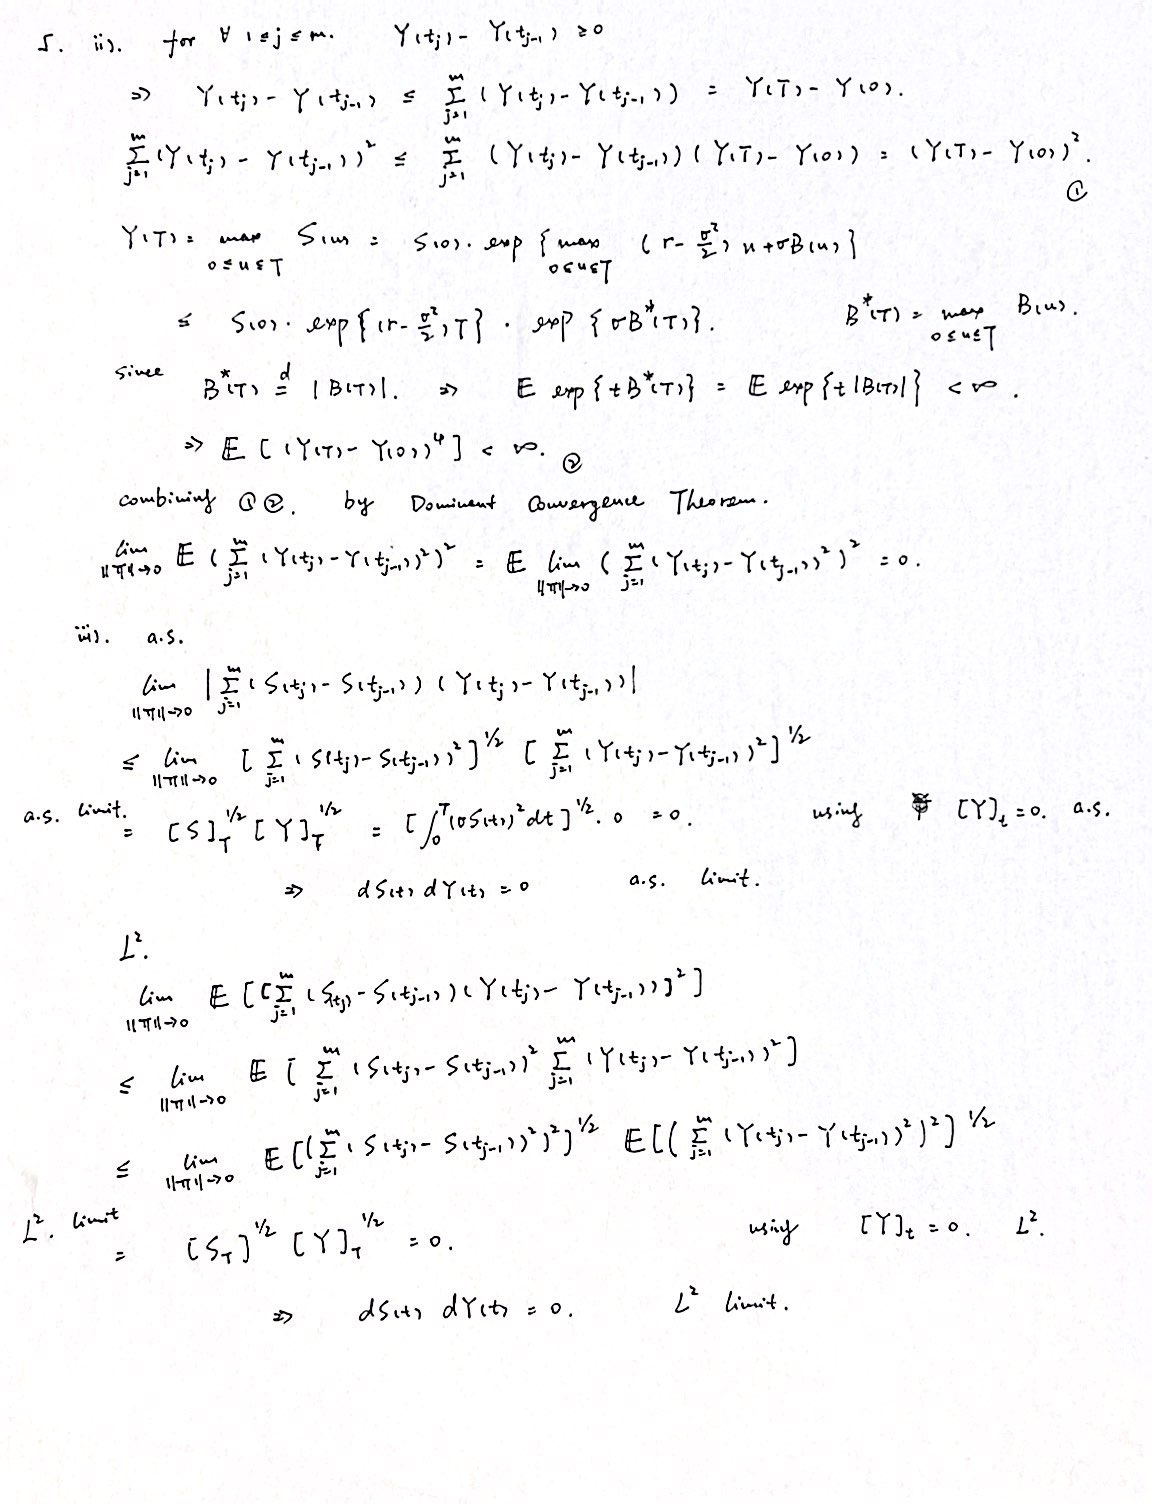 5. ii). for ∀ 1≤j≤m. Y(tj) - Y(tj-1) ≥0
⇒ Y(tj) - Y(tj-1) ≤ Σ_{j=1}^{m} (Y(tj) - Y(tj-1)) = Y(T) - Y(0).
Σ_{j=1}^{m} (Y(tj) - Y(tj-1))² ≤ Σ_{j=1}^{m} (Y(tj) - Y(tj-1))(Y(T) - Y(0)) = (Y(T) - Y(0))². ①
Y(T) = max_{0≤u≤T} S(u) = S(0). exp { max_{0≤u≤T} (r - σ²/2) u + σB(u) }
≤ S(0). exp{(r - σ²/2)T} . exp {σB*(T)}. B*(T) = max_{0≤u≤T} B(u).
since B*(T) =^d |B(T)|. ⇒ E exp{tB*(T)} = E exp{t|B(T)|} < ∞.
⇒ E [(Y(T) - Y(0))⁴] < ∞. ②
combining ①②. by Dominent Convergence Theorem.
lim_{||π||→0} E (Σ_{j=1}^{m} (Y(tj) - Y(tj-1))²)² = E lim_{||π||→0} (Σ_{j=1}^{m} (Y(tj) - Y(tj-1))²)² = 0.
iii). a.s.
lim_{||π||→0} |Σ_{j=1}^{m} (S(tj) - S(tj-1)) (Y(tj) - Y(tj-1))|
≤ lim_{||π||→0} [Σ_{j=1}^{m} (S(tj) - S(tj-1))²]^{1/2} [Σ_{j=1}^{m} (Y(tj) - Y(tj-1))²]^{1/2}
a.s. limit. = [S]_T^{1/2} [Y]_T^{1/2} = [∫_0^T (σS(t))² dt]^{1/2} . 0 = 0. using [Y]_t = 0. a.s.
⇒ dS(t) dY(t) = 0 a.s. limit.
L².
lim_{||π||→0} E [[Σ_{j=1}^{m} (S(tj) - S(tj-1)) (Y(tj) - Y(tj-1))]²]
≤ lim_{||π||→0} E [Σ_{j=1}^{m} (S(tj) - S(tj-1))² Σ_{j=1}^{m} (Y(tj) - Y(tj-1))²]
≤ lim_{||π||→0} E [(Σ_{j=1}^{m} (S(tj) - S(tj-1))²)²]^{1/2} E[(Σ_{j=1}^{m} (Y(tj) - Y(tj-1))²)²]^{1/2}
L². limit = [S_T]^{1/2} [Y]_T^{1/2} = 0. using [Y]_t = 0. L².
⇒ dS(t) dY(t) = 0. L² limit.